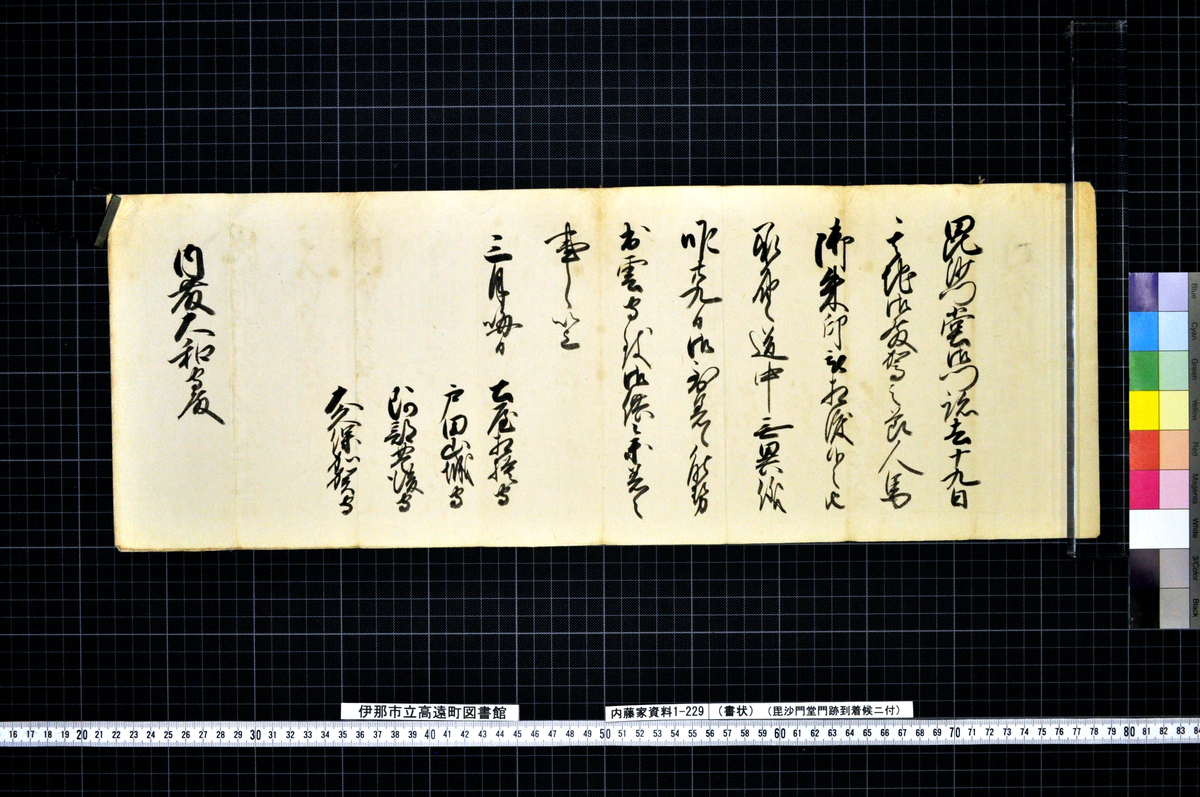 毘沙門堂御門跡去十九日
其地御発駕之節人馬
御朱印被相渡候之由
道中無異儀
昨廿九日御到着候
出雲守
事候
三月晦日
土屋相模守
戸田山城守
阿部豊後守
大久保加賀守
内藤大和守殿
伊那市立高遠町図書館
内藤家資料1-229 (書状) (毘沙門堂門跡到着候ニ付)
Blue
Cyan
Green
Yellow
Red
Magenta
White
3/Color
Black
16 17 18 19 20 21 22 23 24 25 26 27 28 29 30 31 32 33 34 35 36 37 38 39 40 41 42 43 44 45 46 47 48 49 50 51 52 53 54 55 56 57 58 59 60 61 62 63 64 65 66 67 68 69 70 71 72 73 74 75 76 77 78 79 80 81 82 83